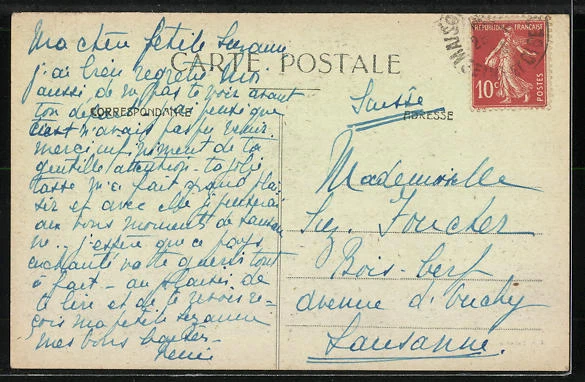 CARTE POSTALE
CORRESPONDANCE
ADRESSE
RÉPUBLIQUE FRANÇAISE
10c
POSTES
Ma chère petite Suzanne
j'ai bien regretté moi
aussi de ne pas te voir avant
ton
n'avais pas pu venir.
merci infiniment de ta
gentille attention - ta jolie
tasse m'a fait grand plai
sir et avec elle je penserai
aux bons moments de Lausan
ne... j'espère que ce pays
enchanté va te guérir tout
à fait - au plaisir de
te lire et de te revoir re-
çois ma petite Suzanne
mes bons baisers
Suisse
Mademoiselle
Suz. Foucher
Bois-Cerf
avenue d'Ouchy
Lausanne.